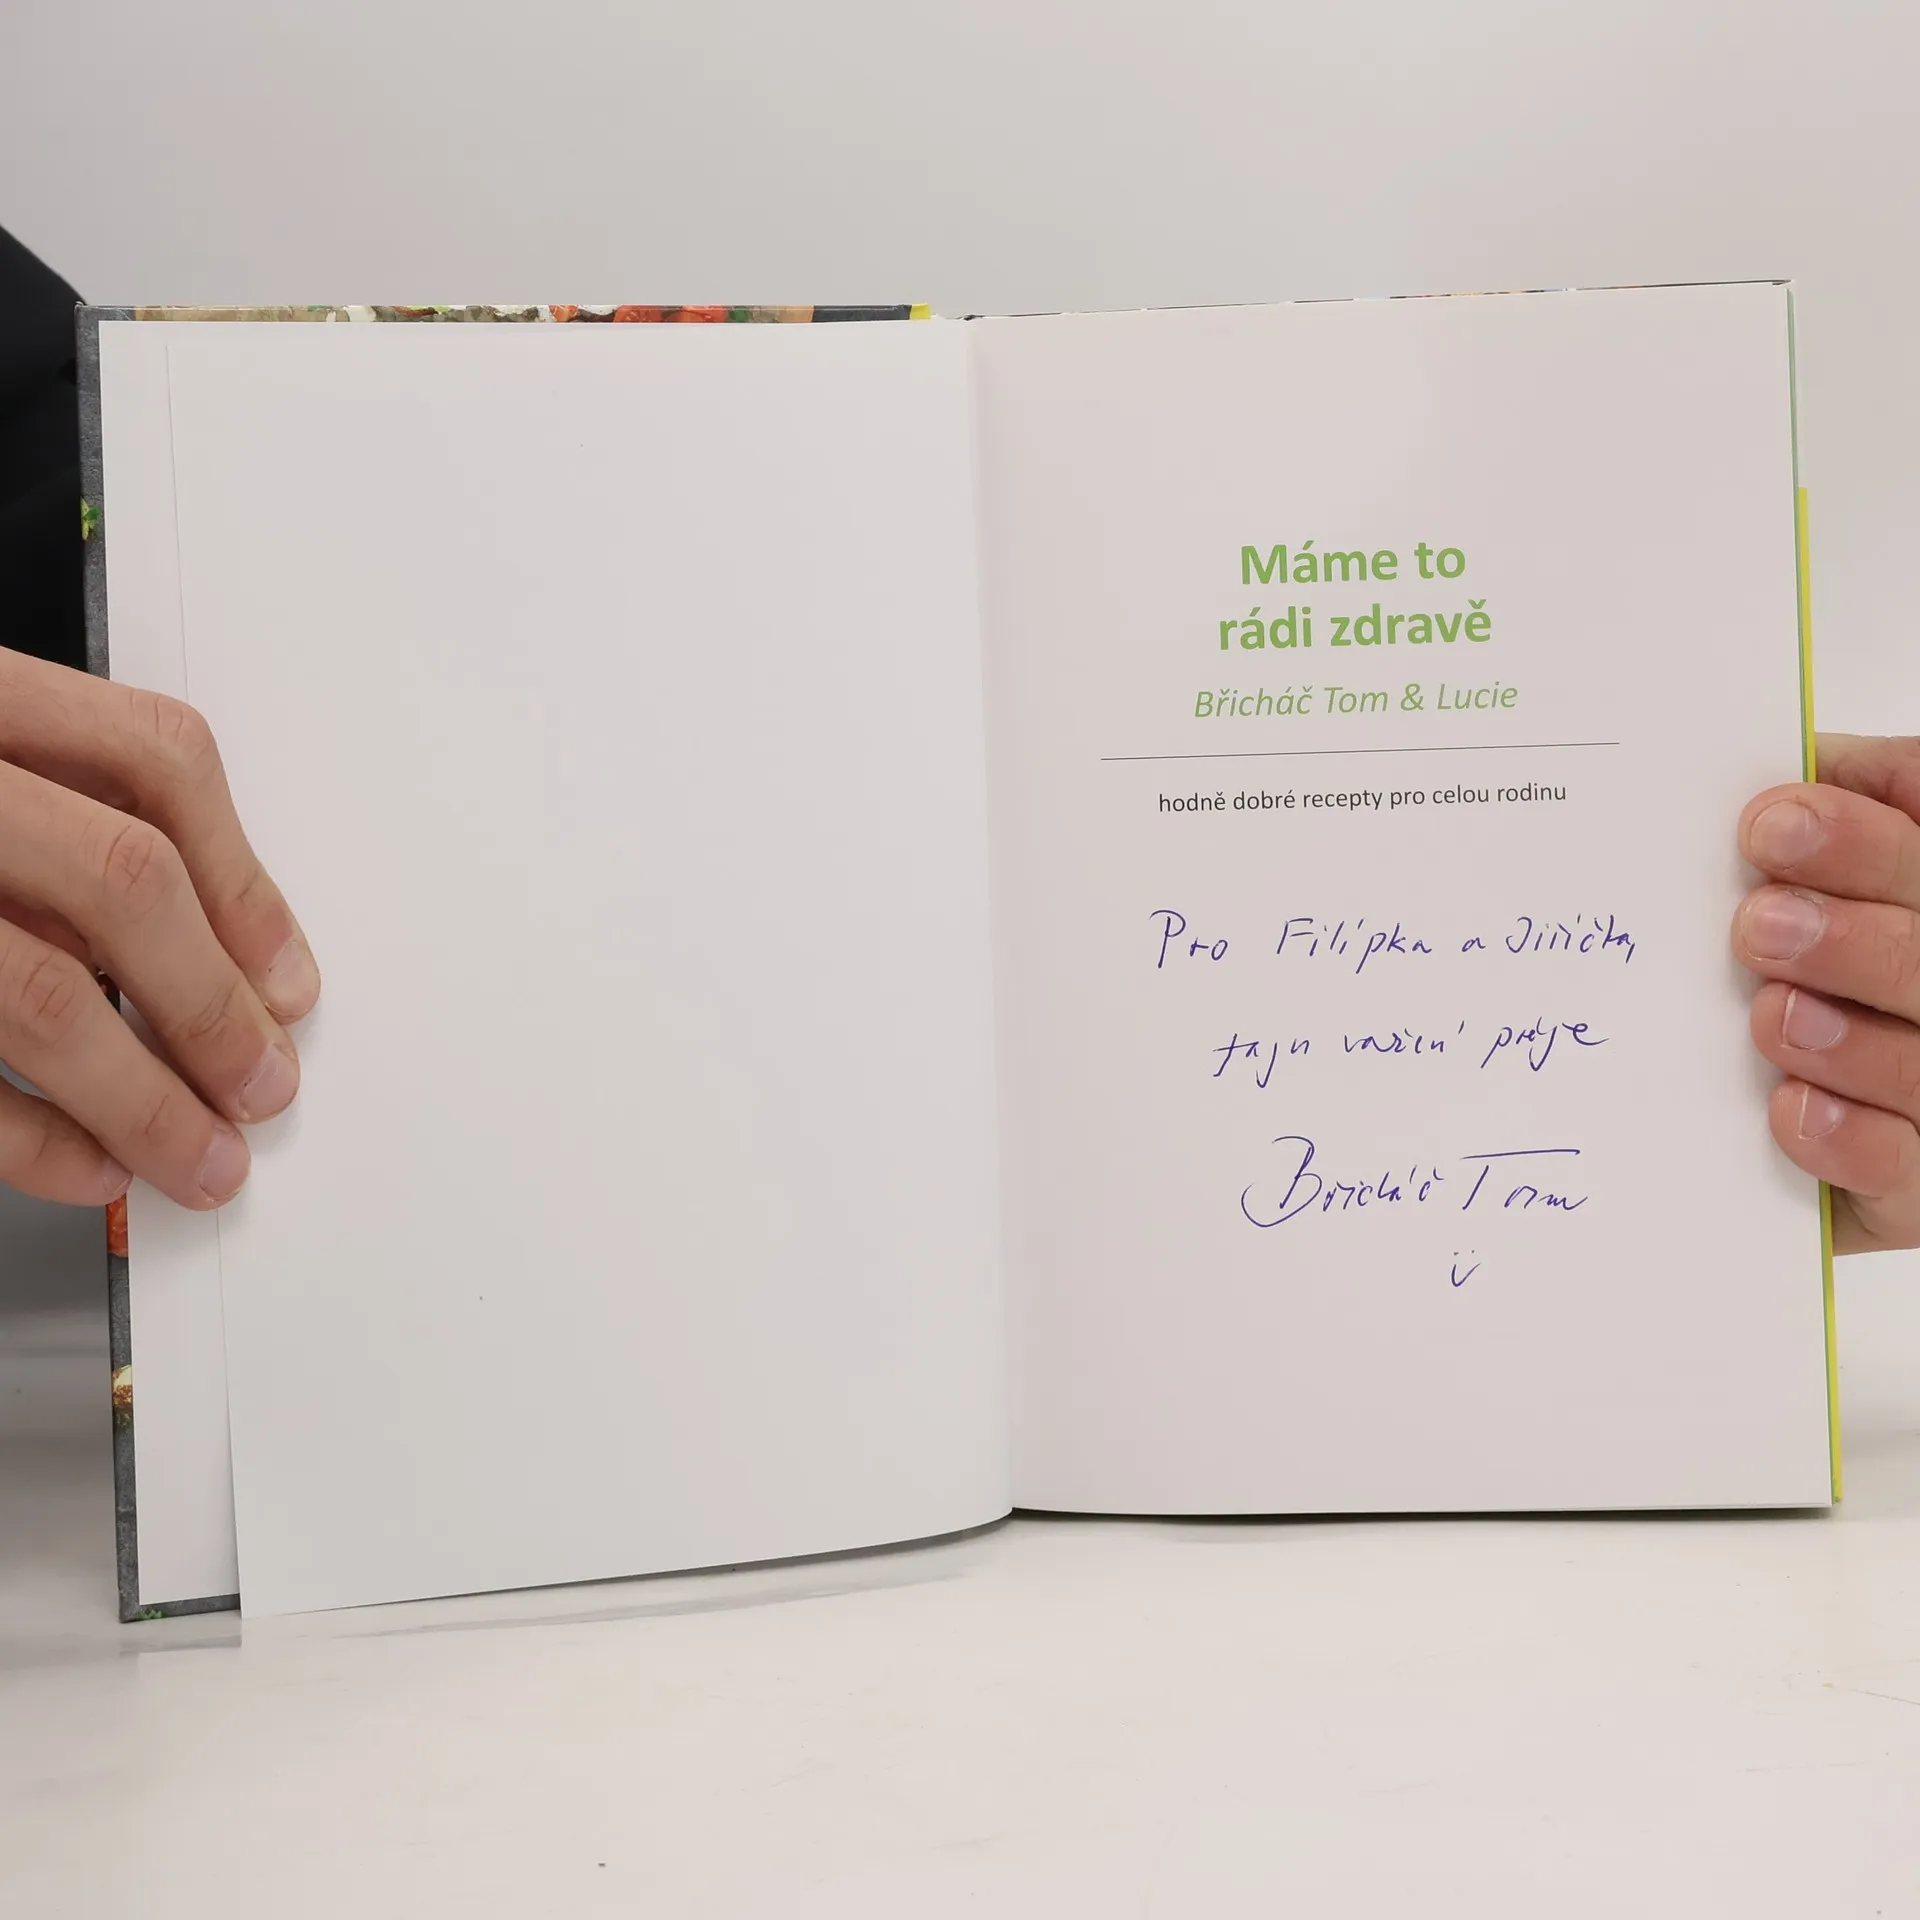 Máme to
rádi zdravě
Břicháč Tom & Lucie
hodně dobré recepty pro celou rodinu
Pro Filípka a Jiříčka,
vaření přeje
Břicháč Tom